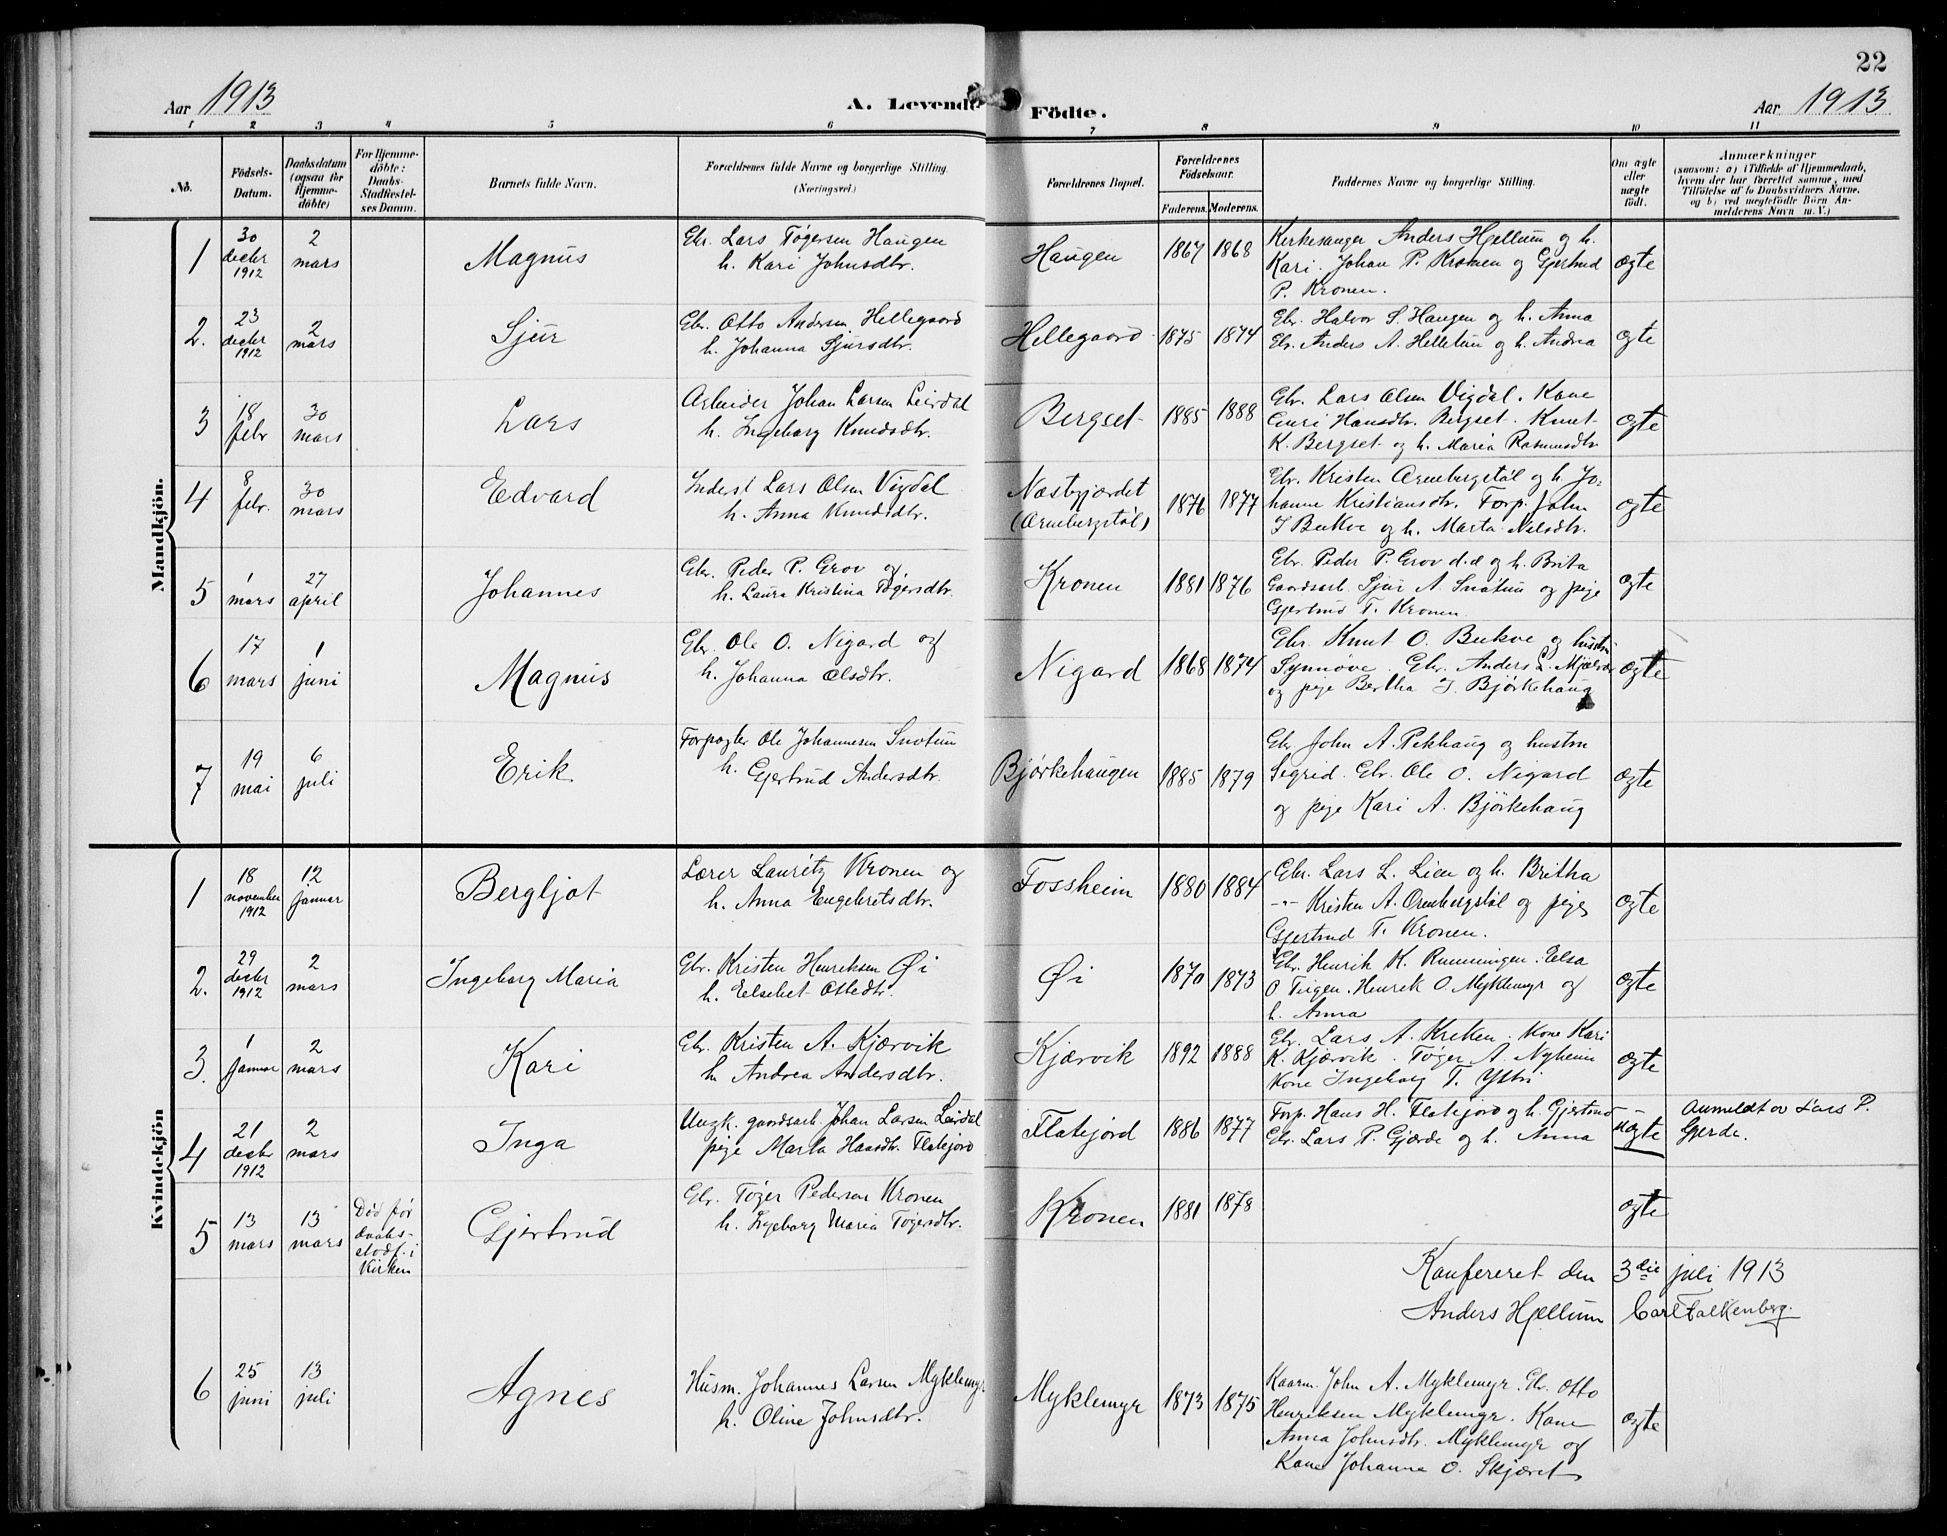 22
Aar 1913
A. Levende Födte.
Aar 1913
1 2 3 4 5 6 7 8 9 10 11
No.
Födsels-
Datum.
Daabsdatum
(ogsaa for
Hjemme-
döbte)
For Hjemme-
döbte:
Daabs-
Stadfæstel-
ses Datum.
Barnets fulde Navn.
Forældrenes fulde Navne og borgerlige Stilling.
(Næringsvei.)
Forældrenes Bopæl.
Forældrenes
Födselsaar.
Faderens. Moderens.
Faddernes Navne og borgerlige Stilling.
Om ægte
eller
uægte
födt.
Anmærkninger
(saasom: a) i Tilfælde af Hjemmedaab,
hvem der har forrettet samme, med
Tilföielse af to Daabsvidners Navne,
og b) ved uægtefödte Börn An-
melderens Navn m. V.)
Mandkjön.
1
30
decbr
1912
2
mars
Magnus
Gbr. Lars Tøgersen Haugen
h. Kari Johnsdtr.
Haugen
1867 1868
Kirkesanger Anders Hjellum og h.
Kari. Johan P. Kronen og Gjertrud
P. Kronen.
ægte
2.
23
decbr
1912
2
mars
Sjur
Gbr. Otto Andersen Hellegaard
h. Johanna Sjursdtr.
Hellegaard
1875 1874
Gbr. Halvor S. Haugen og h. Anna
Gbr. Anders A. Helletun og h. Andrea
ægte
3
18
febr
30
mars
Lars
Arbeider Johan Larsen Leirdal
h. Ingeborg Knudsdtr.
Bergset
1885 1888
Gbr. Lars Olsen Vigdal. Kone
Guri Hansdtr. Bergset. Knut
K. Bergset og h. Maria Rasmusdtr
ægte
4
8
febr.
30
mars
Edvard
Inderst Lars Olsen Vigdal
h. Anna Knudsdtr.
Næstgjærdet
(Ormbergstøl)
1876 1877
Gbr. Kristen Ormbergstøl og h. Jo-
hanne Kristiansdtr. Forp. John
I Bukve og h. Marta Nilsdtr.
ægte
5
1
mars
27
april
Johannes
Gbr. Peder P. Grov og
h. Laura Kristina Tøgersdtr.
Kronen
1881 1876
Gbr. Peder P. Grov d.æ og h. Brita
Gaardsarb. Sjur A. Snøtun og pige
Gjertrud T. Kronen.
ægte
6
17
mars
1
juni
Magnus
Gbr. Ole O. Nigard og
h. Johanna Olsdtr.
Nigard
1868 1874
Gbr. Knut O. Bukve og hustru
Synnøve. Gbr. Anders L. Mjælvær
og pige Bertha I. Bjørkehaug
ægte
7
19
mai
6
juli
Erik
Forpagter Ole Johannesen Snøtun
h. Gjertrud Andersdtr.
Bjørkehaugen
1885 1879
Gbr John A. Pekhaug og hustru
Sigrid. Gbr. Ole O. Nigard
og pige Kari A. Bjørkehaug
ægte
Kvindekjön
1
18
november
1912
12
januar
Bergljot
Lærer Lauritz Kronen og
h. Anna Engebretsdtr.
Fossheim
1880 1884
Gbr. Lars L. Lien og h. Britha
-"- Kristen A. Ormbergstøl og pige
Gjertrud T. Kronen.
ægte
2.
29
decbr
1912
2
mars
Ingeborg Maria
Gbr. Kristen Henriksen Øi
h. Eelsebet Ottedtr.
Øi
1870 1873
Gbr. Henrik K. Rumingen. Elsa
O Teigen. Henrik O. Myklemyr og
h. Anna
ægte
3.
1
januar
2
mars
Kari
Gbr. Kristen A. Kjærvik
h. Andrea Andersdtr.
Kjærvik
1892 1888
Gbr. Lars A. Kreken. Kone Kari
K. Kjærvik. Tøger A. Nyheim
Kone Ingeborg T. Ystri
ægte
4
21
decbr
1912
2
mars
Inga
Ungk. gaardsarb. Johan Larsen Leirdal
pige Marta Hansdtr. Flatejord
Flatejord
1886 1877
Forp. Hans H. Flatejord og h. Gjertrud
Gbr. Lars P. Gjærde og h. Anna
uægte
Anmeldt av Lars P.
Gjerde.
5
13
mars
13
mars
Død før
daabs-
stadf. i
Kirken
Gjertrud
Gbr. Tøger Pedersen Kronen
h. Ingeborg Maria Tøgersdtr.
Kronen
1881 1878
ægte
Konfereret den 3die juli 1913
Anders Hjellum Carl Falkenberg.
6
25
juni
13
juli
Agnes
Husm. Johannes Larsen Myklemyr
h. Oline Johnsdtr.
Myklemyr
1873 1875
Kaarm. John A. Myklemyr. Gbr. Otto
Henriksen Myklemyr. Kone
Anna Johnsdtr. Myklemyr og
Kone Johanna O. Skjæret
ægte